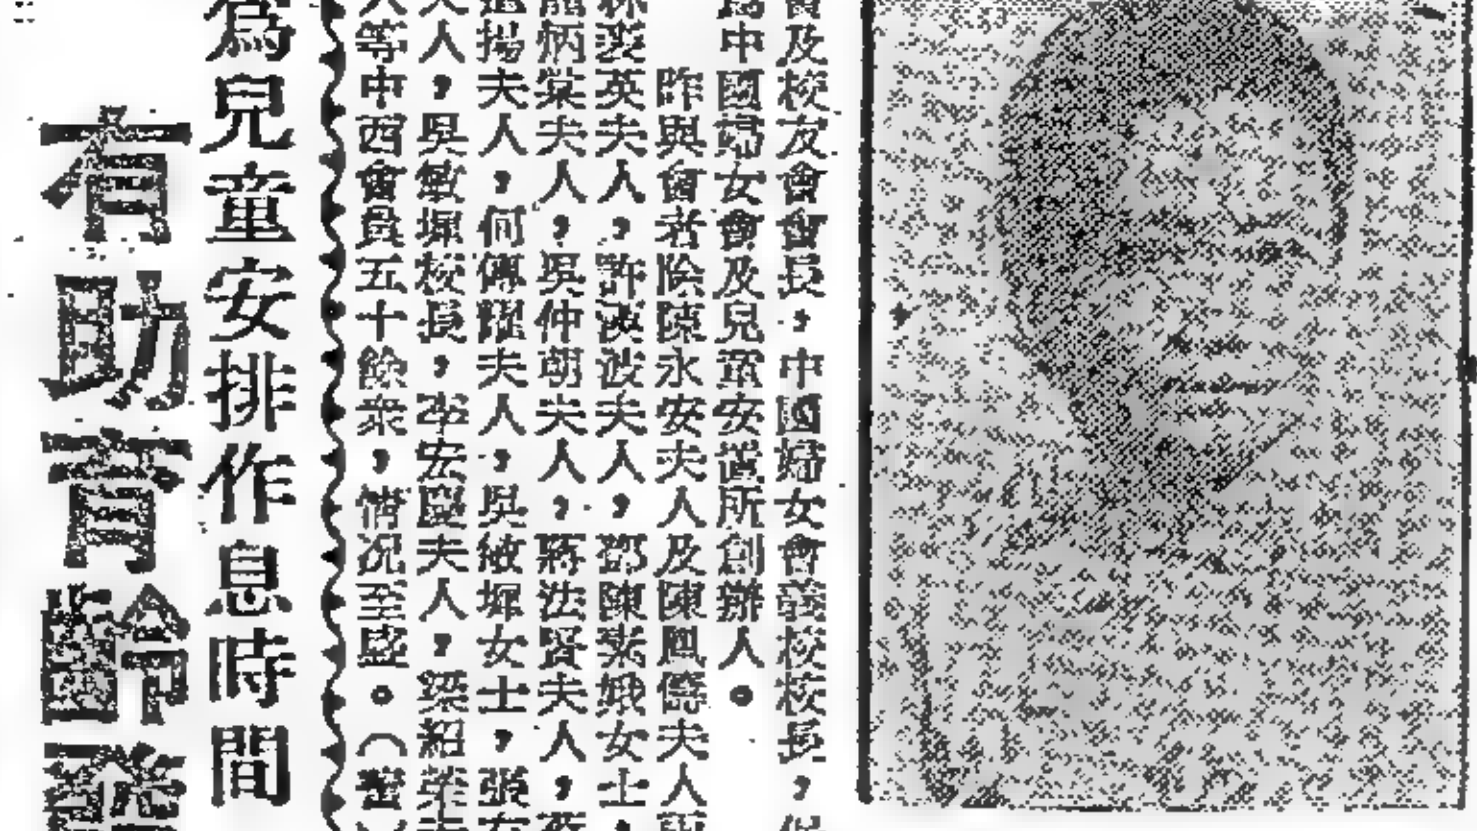 會及校友會會長，中國婦女會義校校長，
為中國婦女會及兒童安置所創辦人。
昨與會者除陳永安夫人及陳鳳儔夫人
英夫人，許淡波夫人，鄧陳素娥女士，
炳棠夫人，吳仲朝夫人，蔣法賢夫人，
揚夫人，何傳耀夫人，吳敏墀女士，張
夫人，吳敏墀校長，李宏慶夫人，梁紹
人等中西會員五十餘衆，情况至盛。（
為兒童安排作息時間
有助育齡